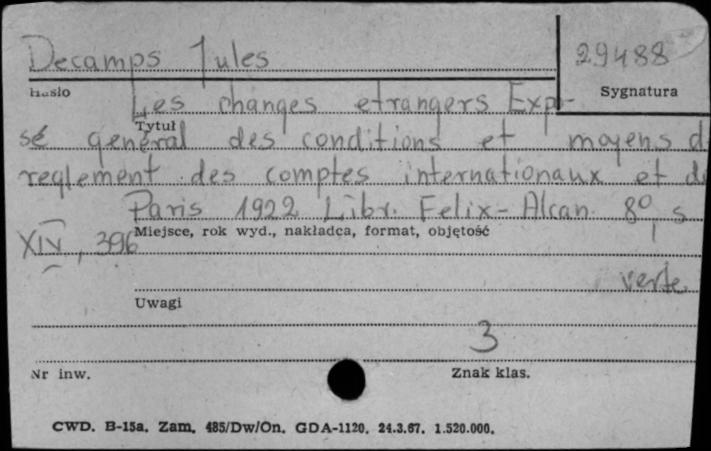 Decamps Jules
29488
Hasło
Sygnatura
Les changes etrangers Expo-
Tytuł
sé général des conditions et moyens d
reglement des comptes internationaux et d
Paris 1922 Libr. Felix-Alcan. 8°, s
Miejsce, rok wyd., nakładca, format, objętość
XIV, 396
verte
Uwagi
3
Nr inw.
Znak klas.
CWD. B-15a. Zam. 485/Dw/On. GDA-1120. 24.3.67. 1.520.000.